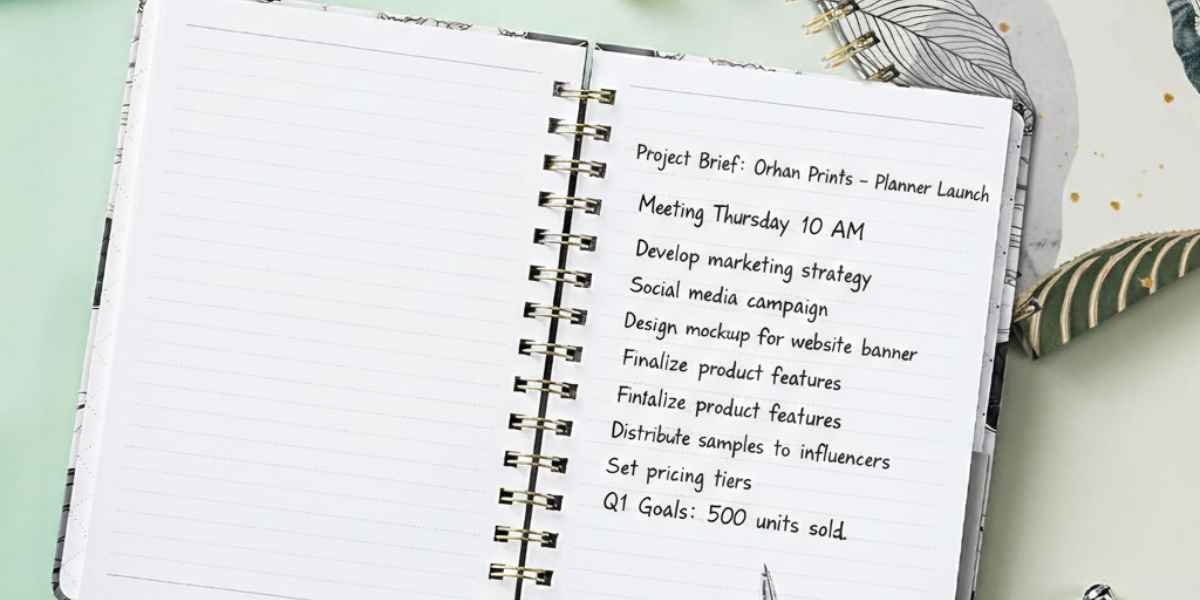 Project Brief: Orhan Prints – Planner Launch
Meeting Thursday 10 AM
Develop marketing strategy
Social media campaign
Design mockup for website banner
Finalize product features
Fintalize product features
Distribute samples to influencers
Set pricing tiers
Q1 Goals: 500 units sold.